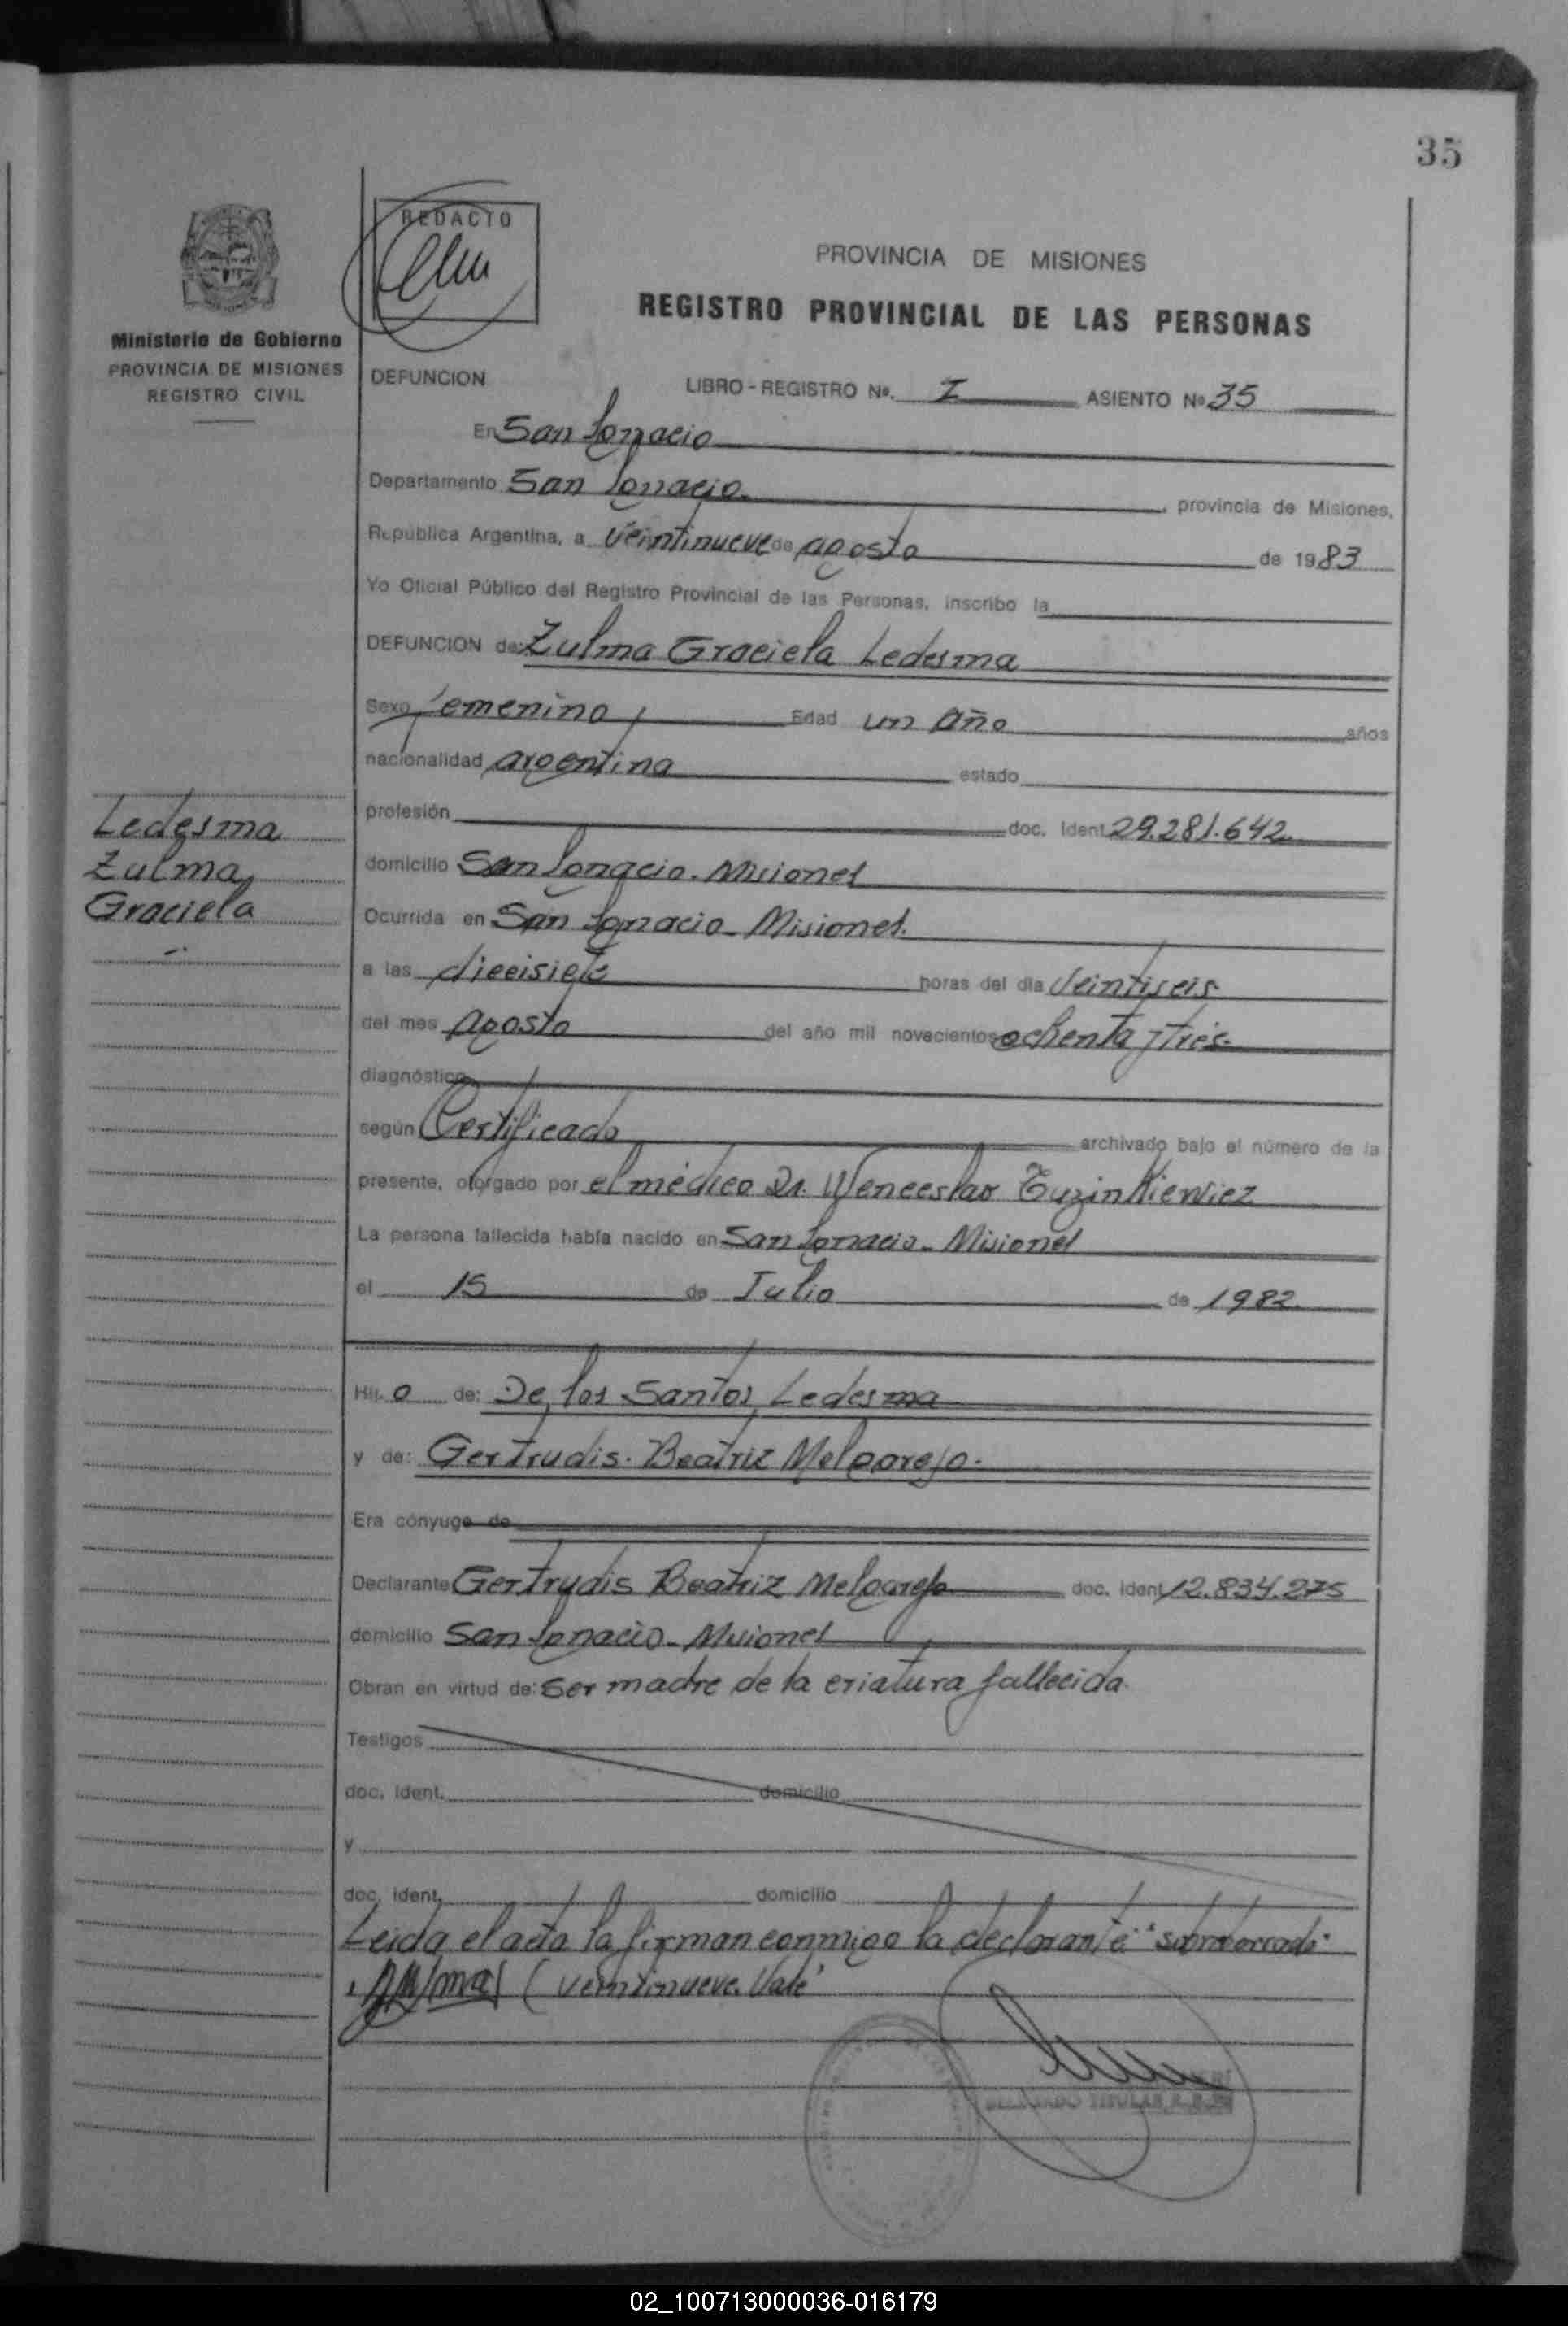 35
REDACTO
PROVINCIA DE MISIONES
REGISTRO PROVINCIAL DE LAS PERSONAS
Ministerio de Gobierno
PROVINCIA DE MISIONES
REGISTRO CIVIL
DEFUNCION LIBRO - REGISTRO Nº. I ASIENTO Nº 35
En San Ignacio
Departamento San Ignacio, provincia de Misiones,
República Argentina, a veintinueve de agosto de 1983
Yo Oficial Público del Registro Provincial de las Personas, inscribo la
DEFUNCION de: Zulma Graciela Ledesma
Sexo femenino Edad un año años
nacionalidad argentina estado
profesión doc. Ident. 29.281.642
domicilio San Ignacio. Misiones
Ledesma
Zulma
Graciela
Ocurrida en San Ignacio - Misiones.
a las diecisiete horas del día veintiseis
del mes agosto del año mil novecientos ochenta y tres.
diagnóstico
según Certificado archivado bajo el número de la
presente, otorgado por el médico Dr. Wenceslao
La persona fallecida había nacido en San Ignacio - Misiones
el 15 de Julio de 1982.
Hij o de: De los Santos Ledesma
y de: Gertrudis Beatriz Melgarejo.
Era cónyuge de
Declarante Gertrudis Beatriz Melgarejo doc. ident. 12.834.275
domicilio San Ignacio - Misiones
Obran en virtud de: Ser madre de la criatura fallecida.
Testigos
doc. ident. domicilio
y
doc. ident. domicilio
Leida el acta la firman conmigo la declarante "sobreborrado"
(veintinueve. Vale"
02_100713000036-016179